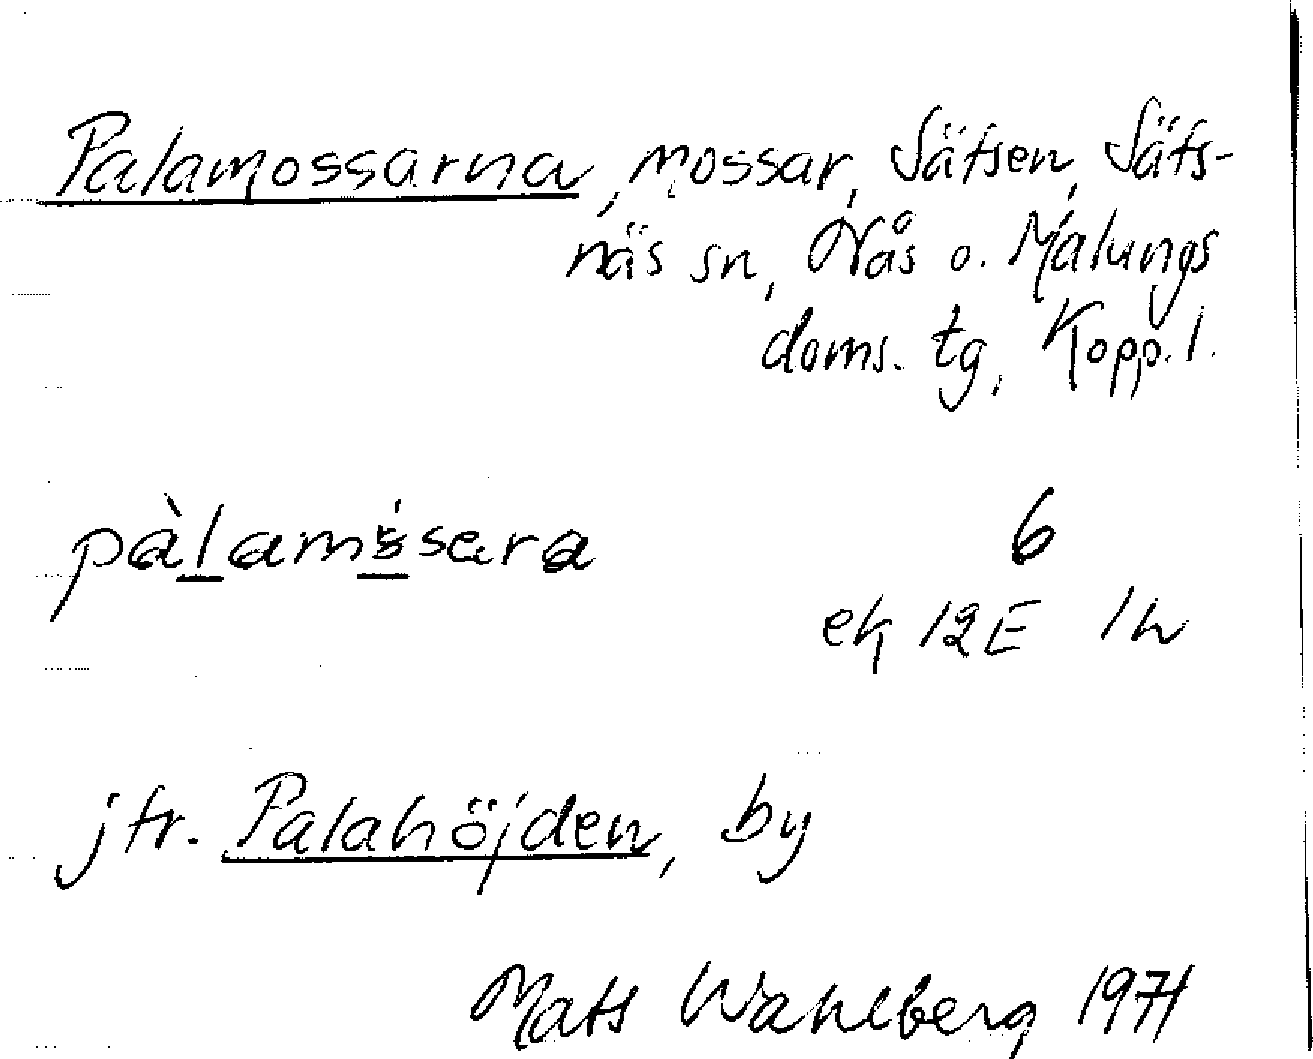 Palamossarna, mossar, Sätsen, Säfs-
näs sn, Nås o. Malungs
doms. tg, Kopp. l.
6
ek 12E 1h
jfr. Palahöjden, by
Mats Wahlberg 1971